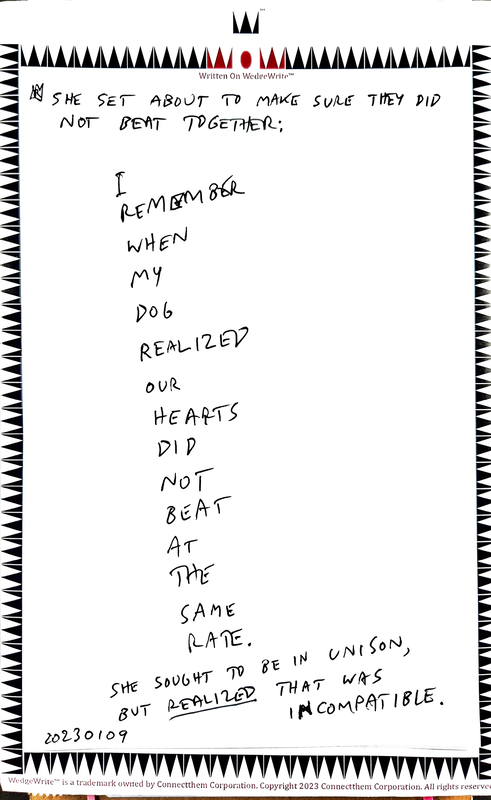 Written On WedgeWrite™
SHE SET ABOUT TO MAKE SURE THEY DID
NOT BEAT TOGETHER:
I
REMEMBER
WHEN
MY
DOG
REALIZED
OUR
HEARTS
DID
NOT
BEAT
AT
THE
SAME
RATE.
SHE SOUGHT TO BE IN UNISON,
BUT REALIZED THAT WAS
INCOMPATIBLE.
20230109
WedgeWrite™ is a trademark owned by Connectthem Corporation. Copyright 2023 Connectthem Corporation. All rights reserve